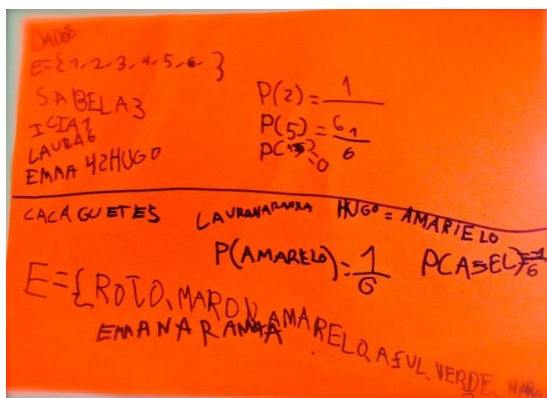 DADOS
E={1,2,3,4,5,6.}
SABELA3
ICIA1
LAURA6
EMMA 42HUGO
P(2)=1/6
P(5)=1/6
=0
CACAGUETES
LAURANARANXA
HUGO = AMARIELO
P(AMARELO)=1/6
P(ASEL)=1/6
E={ROIO, MARON, AMARELO, ASUL, VERDE, NARA
EMANARANXA